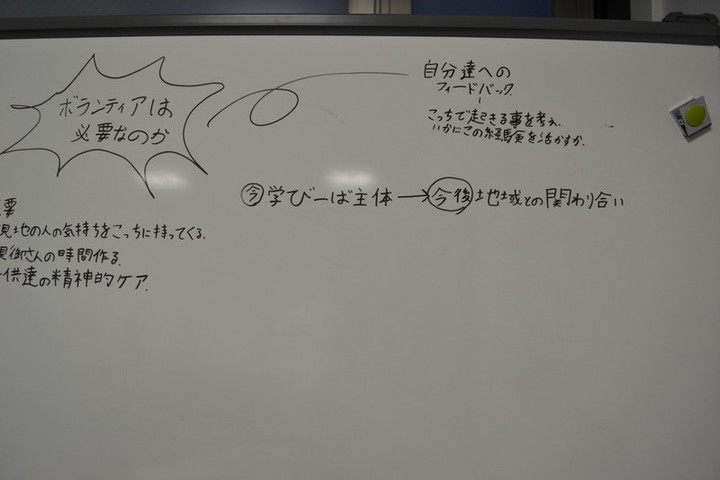 ボランティアは
必要なのか
自分達への
フィードバック
こっちで起きる事を考え、
いかにこの経験を活かすか.
今 学びーば主体→今後 地域との関わり合い
要
現地の人の気持ちをこっちに持ってくる.
親御さんの時間作る.
子供達の精神的ケア.